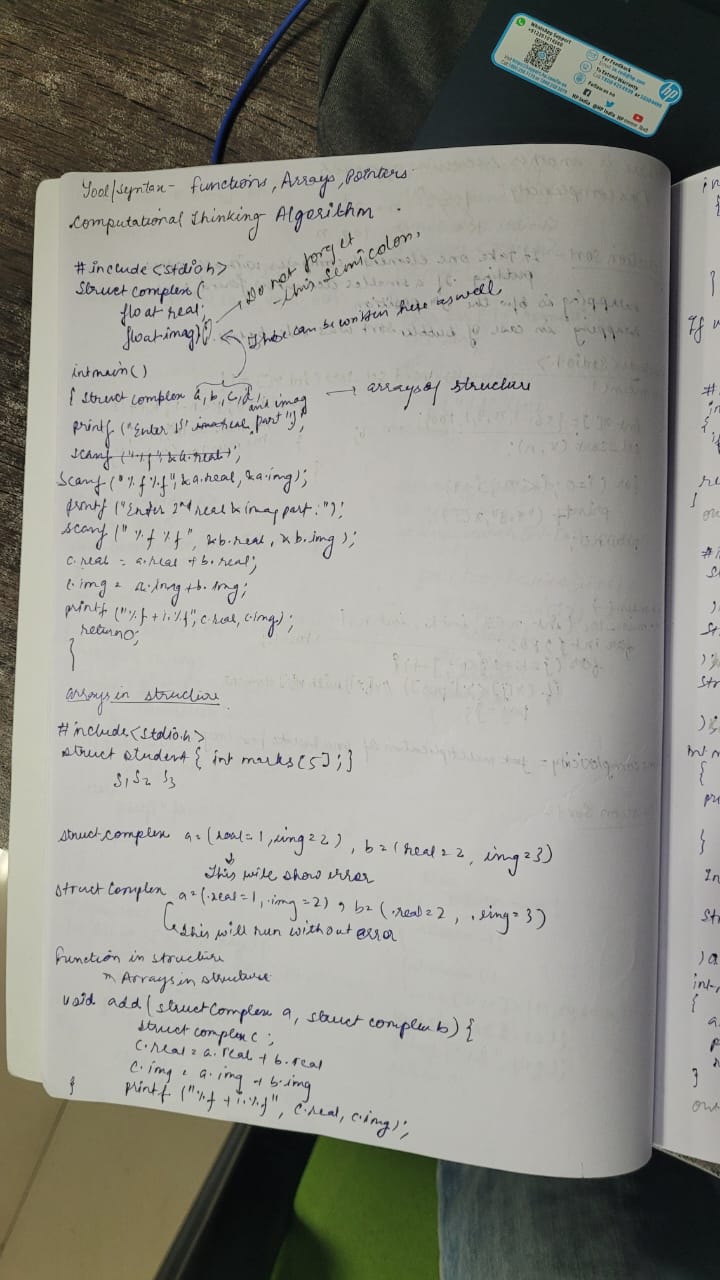 WhatsApp Support
For Feedback
To Extend Warranty
Follow us on
HP India @HP India
hp
Tool/Syntax - Functions, Arrays, Pointers
Computational Thinking Algorithm .
#include <stdio.h>
Struct complex {
float real;
float imag};
Do not forget
this semicolon,
These can be written here as well
int main()
{ struct complex a, b, c, d;
arrays of structure
and imag
printf ("Enter 1st real part");
scanf ("%f" &a.real);
Scanf ("%f %f", &a.real, &a.img);
printf ("Enter 2nd real & imag part:");
scanf (" %f %f", &b.real, &b.img );
c.real = a.real + b.real;
c.img = a.img + b.img;
printf ("%f + i.%f", c.real, c.img);
return 0;
}
arrays in structure
#include <stdio.h>
struct student { int marks [5]; }
S1 S2 S3
struct complex a = (real = 1, img = 2) , b = (real = 2, img = 3)
This will show error
struct Complex a = (.real = 1, .img = 2) , b = (.real = 2, .img = 3)
this will run without error
Function in structure
Arrays in structure
void add (struct Complex a, struct complex b) {
struct complex c ;
c.real = a.real + b.real
c.img = a.img + b.img
printf ("%f + i.%f", c.real, c.img);
}